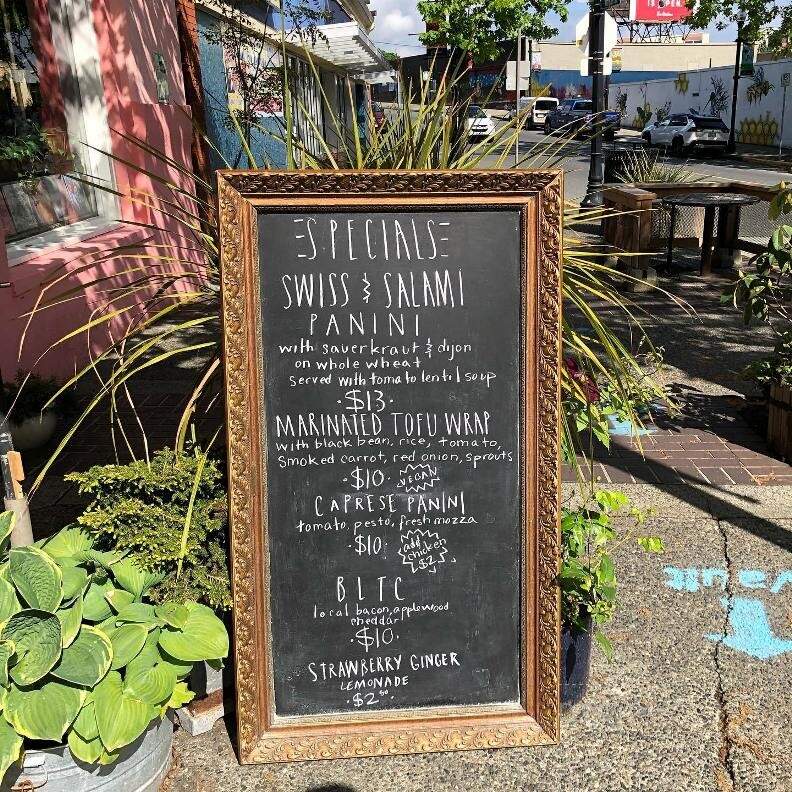 SPECIALS
SWISS & SALAMI
PANINI
with sauerkraut & dijon
on whole wheat
served with tomato lentil soup
$13
MARINATED TOFU WRAP
with black bean, rice, tomato,
Smoked carrot, red onion, sprouts
$10 VEGAN
CAPRESE PANINI
tomato, pesto, fresh mozza
$10 add chicken $2
BLTC
local bacon, applewood
cheddar
$10
STRAWBERRY GINGER
LEMONADE
$2.50
IS OPEN.